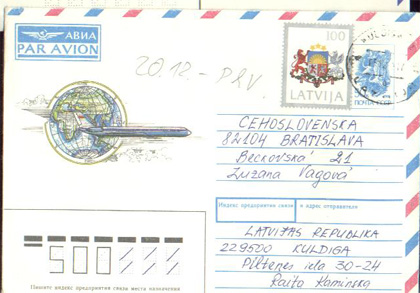 АВИА
PAR AVION
20.12 - PAV
100
LATVIJA
ПОЧТА СССР
CEHOSLOVENSKA
82104 BRATISLAVA
Beckovská 21
Zuzana Vagová
Индекс предприятия связи и адрес отправителя
LATVIJAS REPUBLIKA
229500 KULDIGA
Piltenes iela 30-24
Raita Kaminska
500
Пишите индекс предприятия связи места назначения